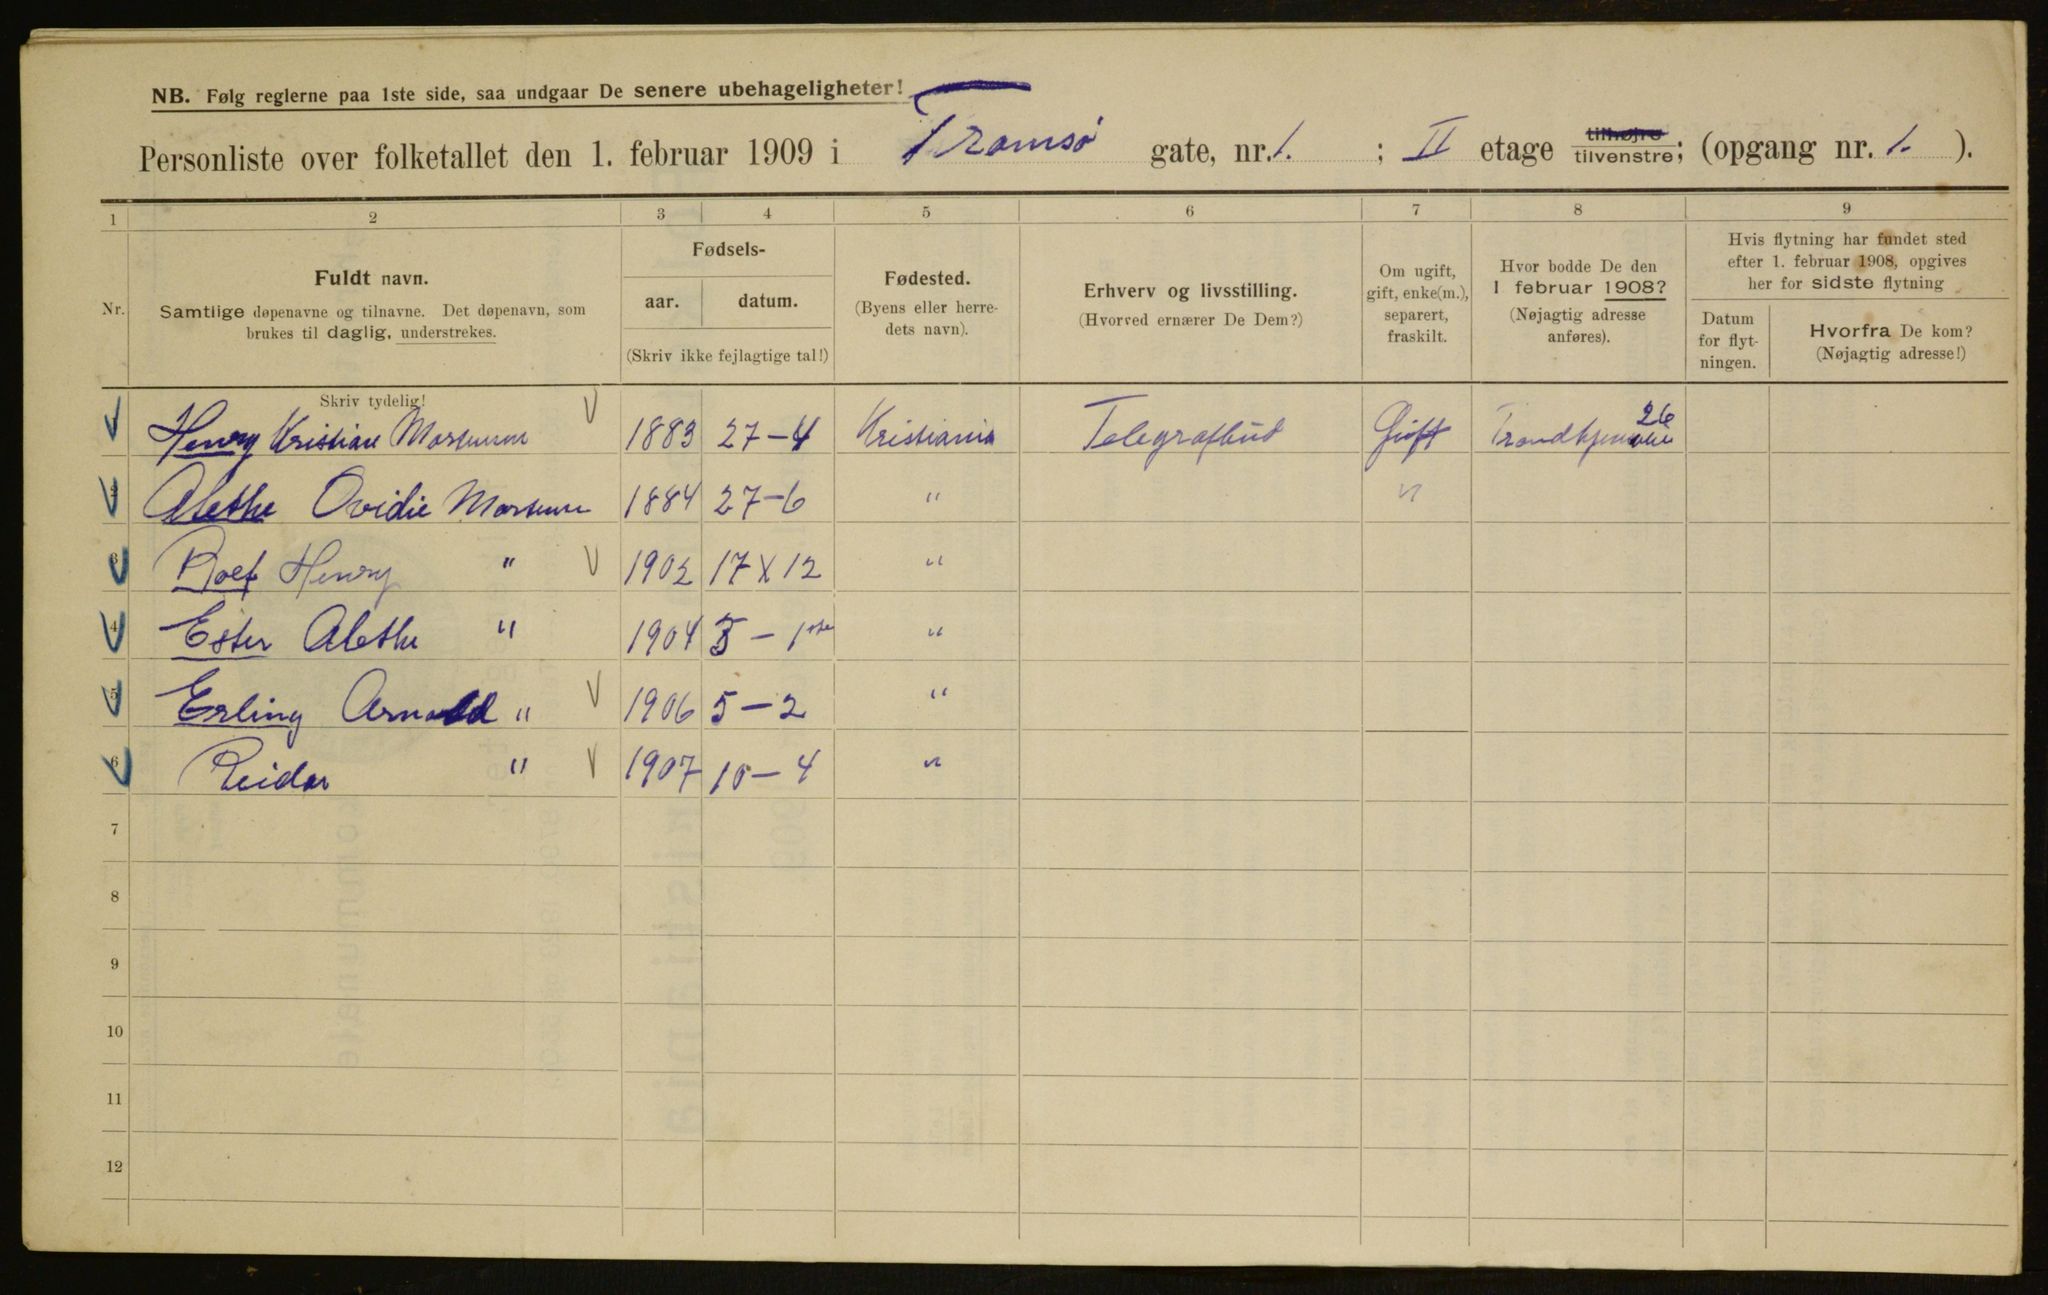 NB. Følg reglerne paa 1ste side, saa undgaar De senere ubehageligheter!
Personliste over folketallet den 1. februar 1909 i Tromsø gate, nr. 1. ; II etage tilhøjre tilvenstre; (opgang nr. 1. ).
1 2 3 4 5 6 7 8 9
Nr.
Fuldt navn.
Samtlige døpenavne og tilnavne. Det døpenavn, som
brukes til daglig, understrekes.
Fødsels-
aar. datum.
(Skriv ikke fejlagtige tal!)
Fødested.
(Byens eller herre-
dets navn).
Erhverv og livsstilling.
(Hvorved ernærer De Dem?)
Om ugift,
gift, enke(m.),
separert,
fraskilt.
Hvor bodde De den
1 februar 1908?
(Nøjagtig adresse
anføres).
Hvis flytning har fundet sted
efter 1. februar 1908, opgives
her for sidste flytning
Datum
for flyt-
ningen.
Hvorfra De kom?
(Nøjagtig adresse!)
Skriv tydelig!
1 Henry Kristian 1883 27-4 Kristiania Telegrafbud Gift 26
2 Alethe Ovidie 1884 27-6 " "
3 Henry " 1902 17 X 12 "
4 Ester Alethe " 1904 "
5 Erling Arnold " 1906 5-2 "
6 Reidar " 1907 10-4 "
7
8
9
10
11
12